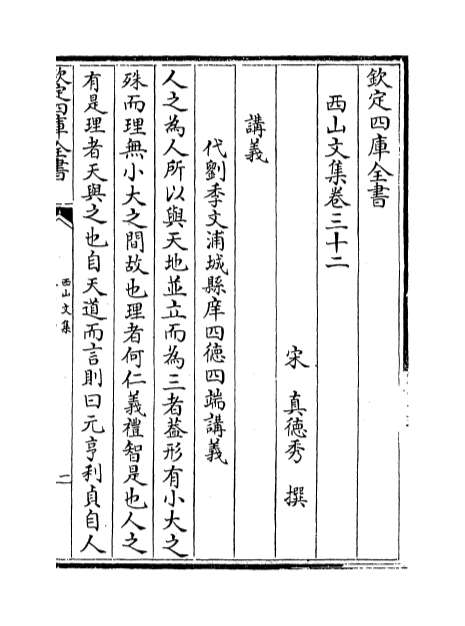 欽定四庫全書
西山文集卷三十二
宋　真徳秀　撰
講義
代劉季文浦城縣庠四徳四端講義
人之為人所以與天地並立而為三者葢形有小大之
殊而理無小大之間故也理者何仁義禮智是也人之
有是理者天與之也自天道而言則曰元亨利貞自人
欽定四庫全書
西山文集